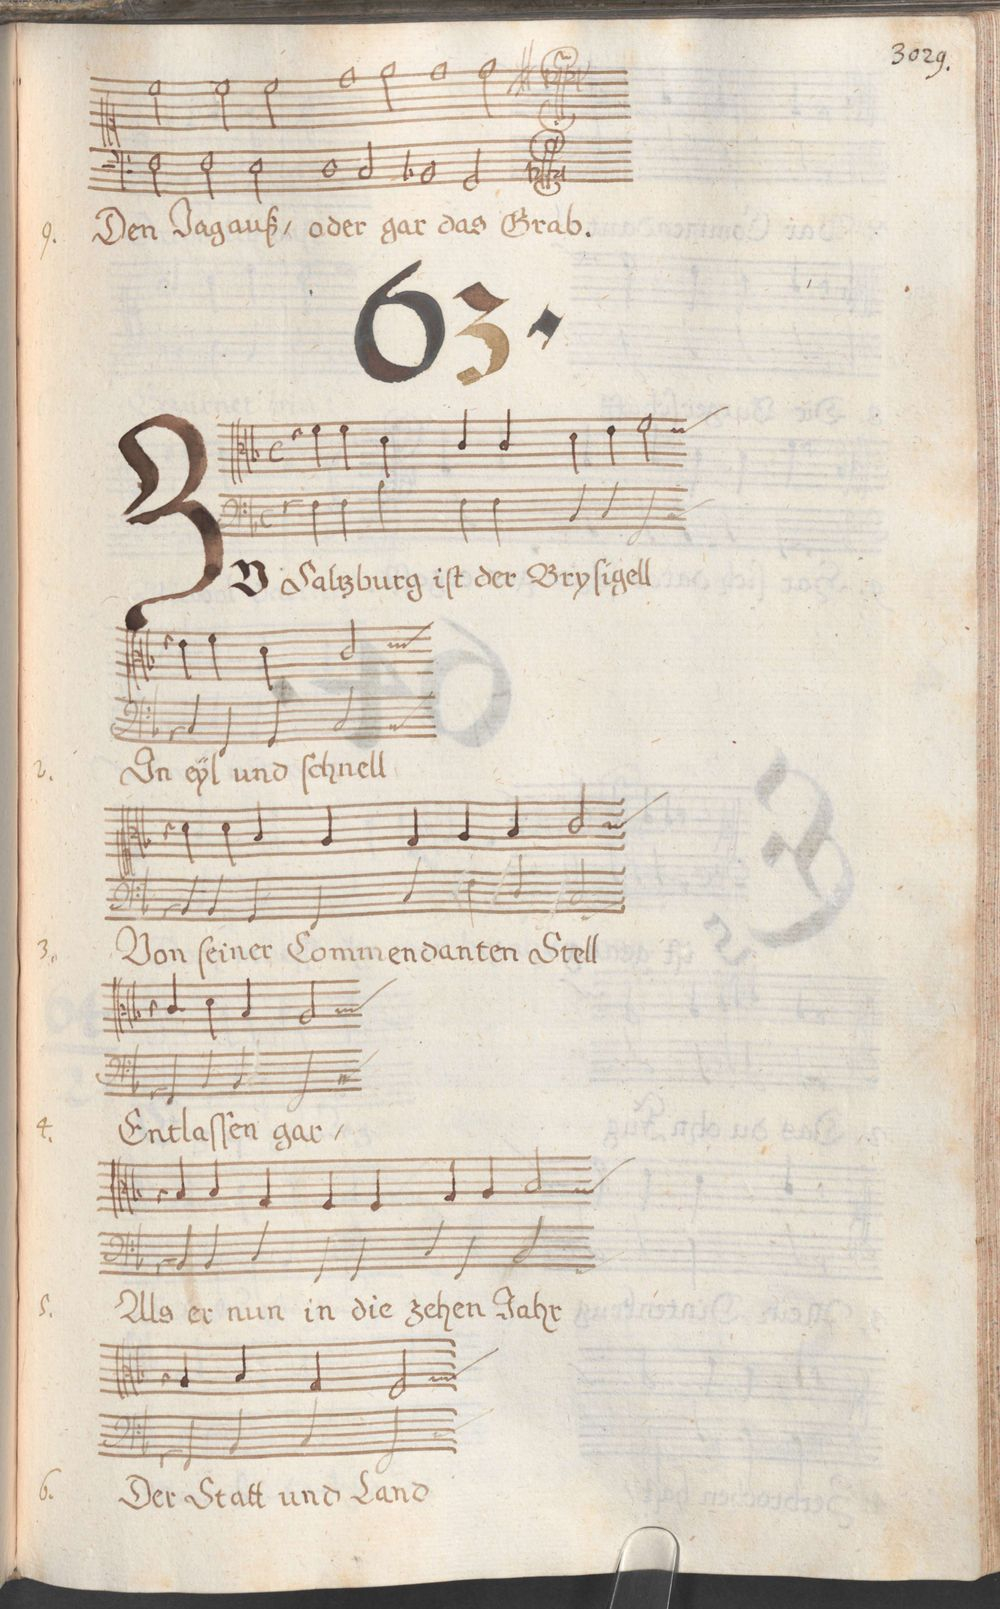 3029.
9. Den Jagauß/ oder gar das Grab.
63.
ZU Saltzburg ist der Brysigell
2. In eÿl und schnell
3. Von seiner Commendanten Stell
4. Entlassen gar/
5. Als er nun in die zehen Jahr
6. Der Statt und Land